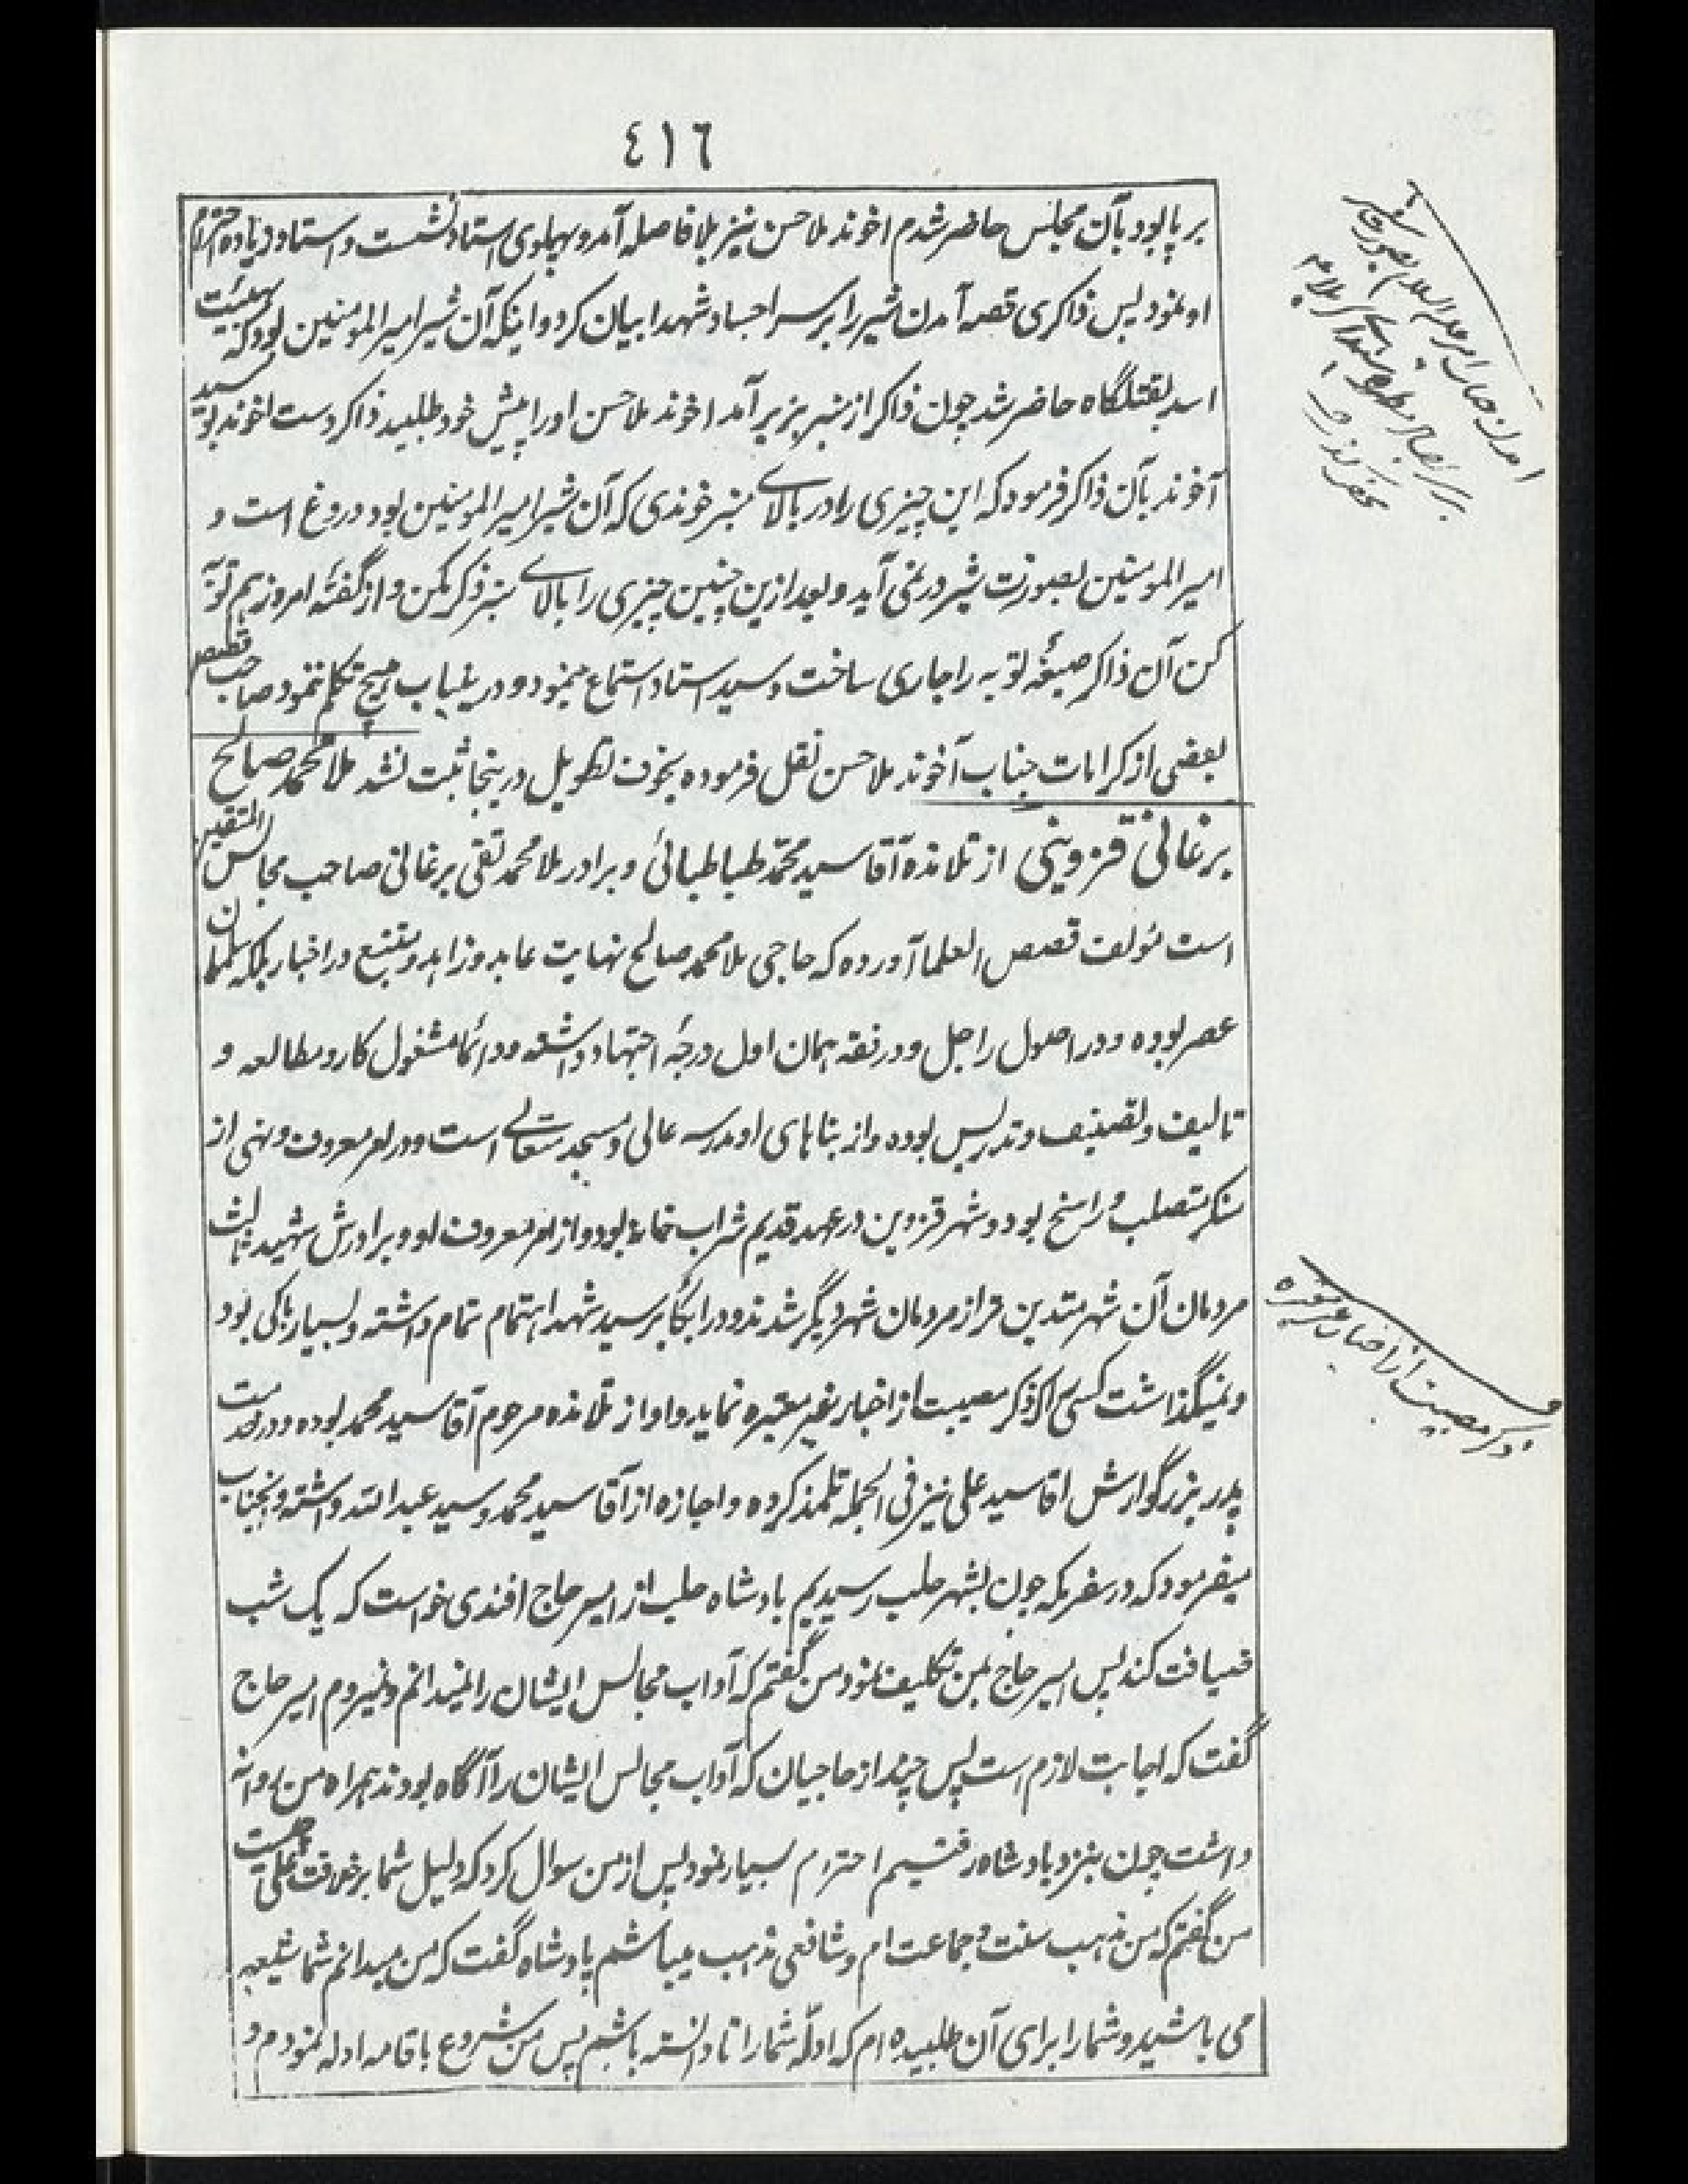 ٤١٦
بر پا بود بآن مجلس حاضر شدم اخوند ملا حسن نیز بلا فاصله آمد و بپهلوی استاد نشست و استاد زیاده احترام
او نمود پس ذاکری قصه آمدن شیر را بر سر اجساد شهدا بیان کرد و اینکه آن شیر امیر المومنین بود که بهیئت
اسد بقتلگاه حاضر شد چون ذاکر از منبر بزیر آمد اخوند ملا حسن او را پیش خود طلبید ذاکر دست اخوند بوسید
آخوند بآن ذاکر فرمود که این چیزی را در بالای منبر خوندی که آن شیر امیر المومنین بود دروغ است و
امیر المومنین بصورت شیر در نمی آید و بعد ازین چنین چیزی را بالای منبر ذکر مکن و از گفتهٔ امروز هم توبه
کن آن ذاکر صیغهٔ توبه را جاری ساخت و سید استاد استماع مینمود و درینباب هیچ تکلم ننمود صاحب قصص
بعضی از کرامات جناب آخوند ملا حسن نقل فرموده بخوف تطویل درینجا ثبت نشد ملا محمد صالح
برغانی قزوینی از تلامذه آقا سید محمد طباطبائی و برادر ملا محمد تقی برغانی صاحب مجالس المتقین
است مؤلف قصص العلما آورده که حاجی ملا محمد صالح نهایت عابد و زاهد و متتبع در اخبار بلکه سلمان
عصر بوده و در اصول راجل و در فقه همان اول درجهٔ اجتهاد داشته و دائما مشغول کار و مطالعه و
تالیف و تصنیف و تدریس بوده و از بناهای او مدرسه عالی و مسجد متعالی است و در امر معروف و نهی از
منکر متصلب و راسخ بود و شهر قزوین در عهد قدیم شراب خانه بود و از امر معروف او و برادرش شهید ثالث
مردمان آن شهر متدین تر از مردمان شهر دیگر شدند و در ابکا بر سید شهدا اهتمام تمام داشته و بسیار باکی بود
و نمیگذاشت کسی را که ذکر مصیبت از اخبار غیر معتبره نماید و او از تلامذه مرحوم آقا سید محمد بوده و در خدمت
پدر بزرگوارش اقا سید علی نیز فی الجمله تلمذ کرده و اجازه از آقا سید محمد و سید عبد الله داشته و آنجناب
میفرمود که در سفر مکه چون بشهر حلب رسیدیم بادشاه حلب از امیر حاج افندی خواست که یک شب
ضیافت کند پس امیر حاج بمن تکلیف نمود من گفتم که آداب مجالس ایشان را نمیدانم و نمیروم امیر حاج
گفت که اجابت لازم است پس چند از حاجیان که آداب مجالس ایشان را آگاه بودند همراه من روانه
داشت چون بنزد بادشاه رفتیم احترام بسیار نمود پس از من سوال کرد که دلیل شما بر خلافت علی چیست
من گفتم که من مذهب سنت و جماعت ام و شافعی مذهب میباشم پادشاه گفت که من میدانم شما شیعه
می باشید و شما را برای آن طلبیده ام که ادلهٔ شما را تا دانسته باشم پس من شروع باقامه ادله نمودم و
ذکر مصیبت از اخبار غیر معتبره